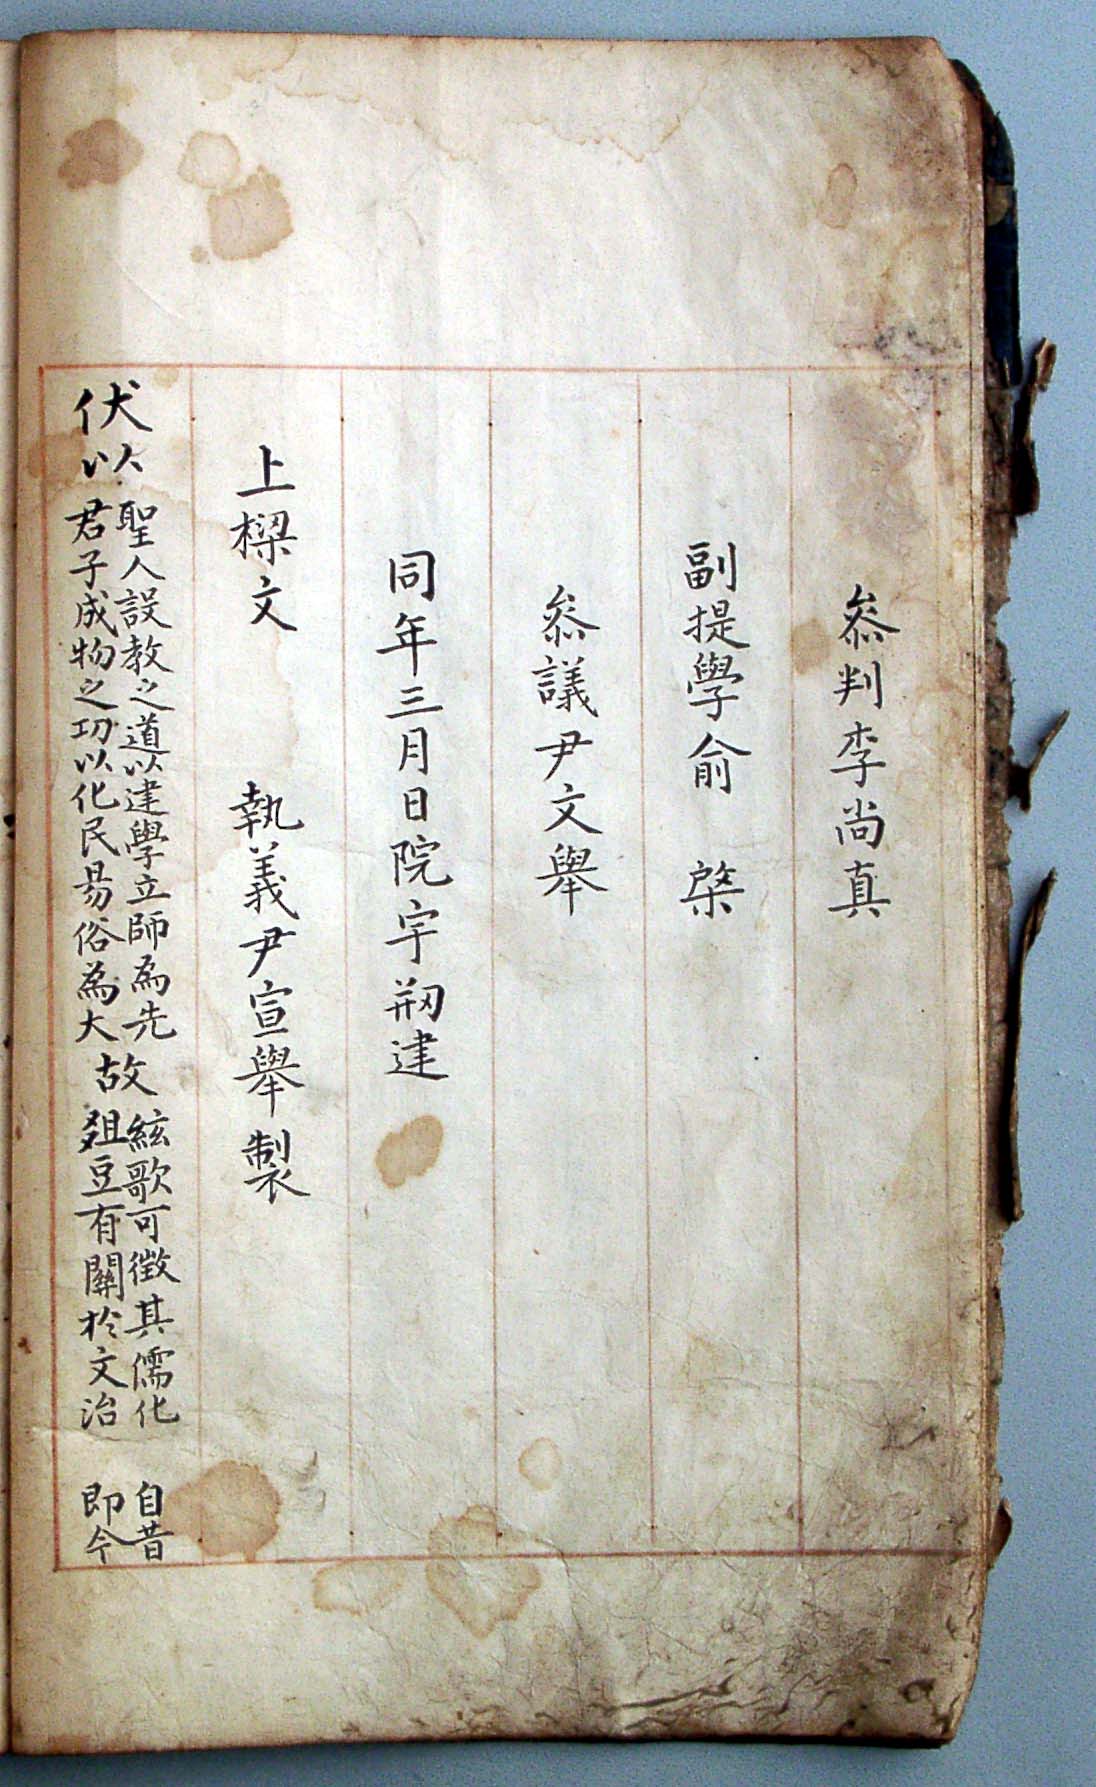 叅判李尚真
副提學俞 棨
叅議尹文舉
同年三月日院宇刱建
上樑文 執義尹宣舉製
伏以
聖人設教之道以建學立師為先
君子成物之功以化民易俗為大
故
絃歌可徵其儒化
俎豆有關於文治
自昔
即今